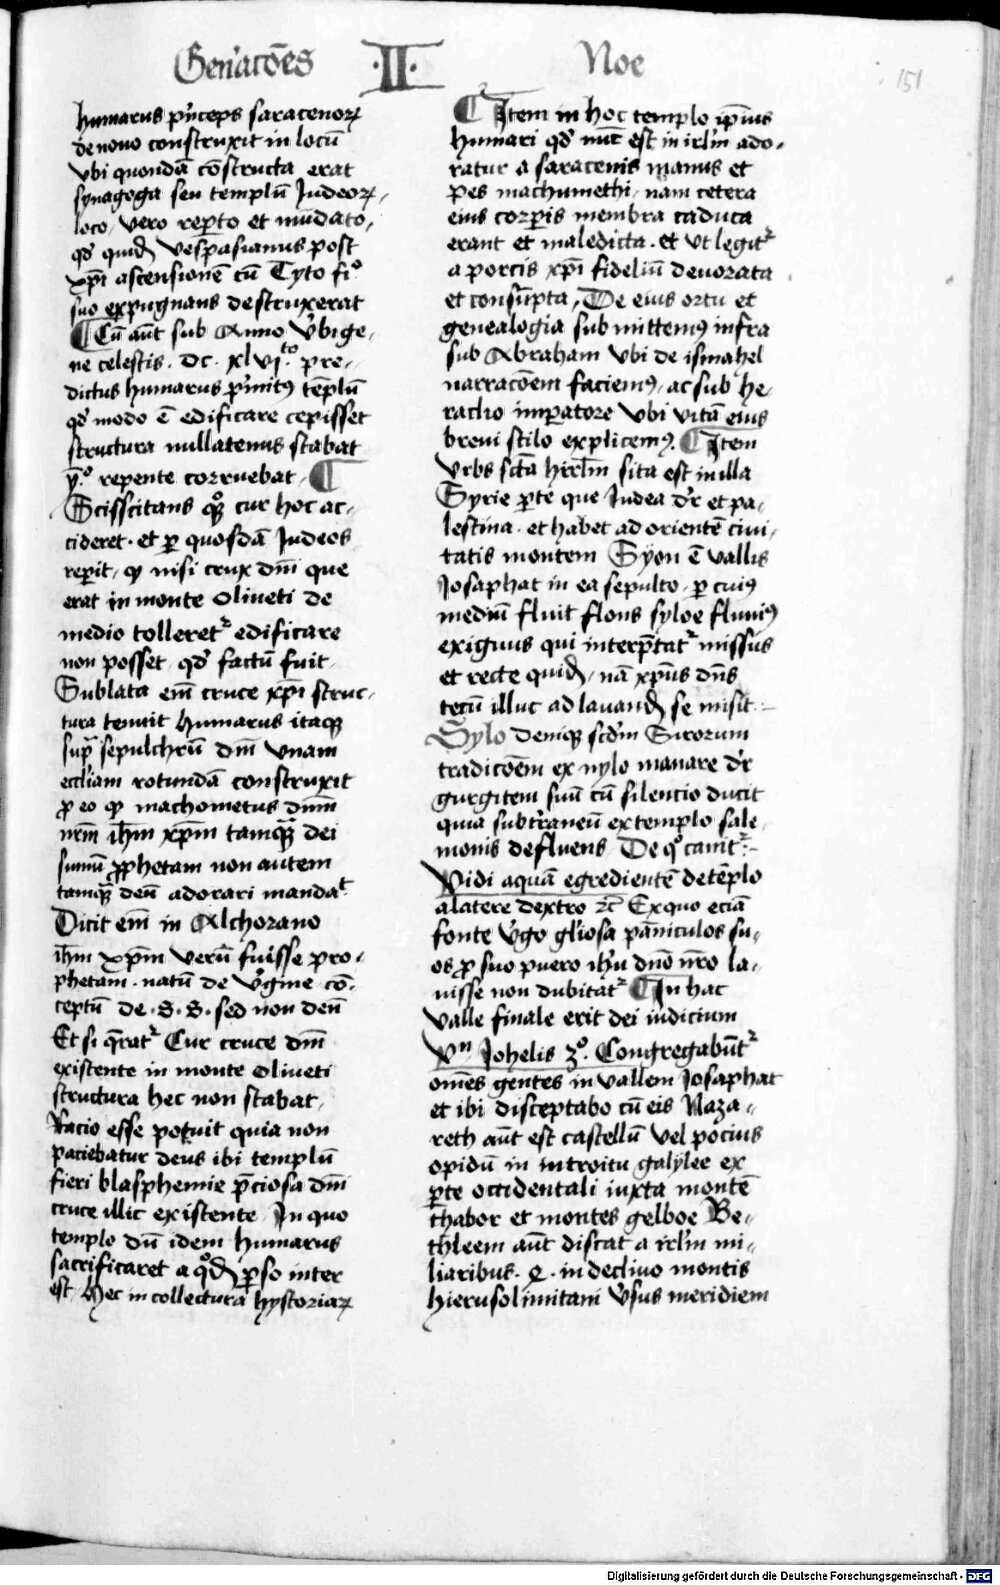 Gen'acōes ·II· Noe
151
humarus p'nceps saracenoꝝ
de novo construxit in locū
vbi quondā cōstructa erat
synagoga seu templū Judeoꝝ
loco vero rep̄to et mūdato,
qd' quid' vespasianus post
xp̄i ascensionē cū Tyto fi°
suo expugnans destruxerat
Cū aūt sub Anno v̄bi ge-
ne celestis . dc . xlvj.to pre-
dictus humarus p'mitꝰ tēplū
qd' modo ē edificare cepisset
structura nullatenus stabat
repente corruebat .
Scisscitans cur hoc ac-
cideret . et ꝑ quosdā Judeos
rep̄it, ꝙ nisi crux dm̄i que
erat in monte Oliveti de
medio tolleret' edificare
non posset, qd' factū fuit
Sublata em̄ cruce xp̄i struc-
tura tenuit humarus itaqꝫ
sup̄ sepulchrū dm̄i vnam
eccl'iam rotundā construxit
ꝓ eo ꝙ machometus dn̄m
nr̄m ih̄m xp̄m tamqꝫ dei
sumū ꝓphetam non autem
tamqꝫ deū adorari mandat
Dicit em̄ in Alchorano
ih̄m xp̄m verū fuisse pro-
phetam . natū de v̄gine cō-
ceptū de . S . S . sed non deū
Et si q̄rat' Cur cruce dm̄i
existente in monte oliveti
structura hec non stabat,
Racio esse potuit quia non
paciebatur deus ibi templū
fieri blasphemie p̄ciosa dm̄i
cruce illic existente, In quo
templo dū idem humarus
sacrificaret a qͦd' p̄so inter
est, hec in collectura hystoriaꝝ
Item in hoc templo ip̄ius
humari qd' nūc est in irl'm ado-
ratur a saracenis manus et
pes machumethi, nam cetera
eius corp̄is membra caduca
erant et maledicta . et vt legit'
a porcis xp̄i fideliū devorata
et consūpta, De eius ortu et
genealogia submittemꝰ infra
sub Abraham vbi de ismahel
narracōem faciemꝰ, ac sub he-
raclio imp̄atore vbi vitā eius
brevi stilo explicemꝰ. Item
vrbs sc̄ta hirl'm sita est in illa
Syrie p̄te que Judea dr̄ et pa-
lestina . et habet ad orientē civi-
tatis montem Syon ē vallis
Josaphat in ea sepulto, ꝑ cuiꝰ
mediū fluit flons syloe fluviꝰ
exiguus qui interp̄tat' missus
et recte quid', nā xp̄us dn̄s
tecū illuc ad lavand' se misit
Sylo deniqꝫ scd'm Sirorum
tradicōem ex nylo manare dr̄
gurgitem suū cū silencio ducit
quia subt'raneū ex templo sale-
monis defluens De qͦ canit'
Vidi aquā egredientē de tēplo
a latere dextro rc̄ Ex quo eciā
fonte v̄go gl'iosa pāniculos su-
os ꝓ suo puero ih'u dn̄o nr̄o la-
uisse non dubitat' In hac
valle finale erit dei iudicium
Vn̄ Johelis 3°. Congregabūt'
om̄es gentes in vallem Josaphat
et ibi disceptabo cū eis Naza-
reth aūt est castellū vel pocius
opidū in introitu galylee ex
p̄te occidentali iuxta montē
thabor et montes gelboe Be-
thleem aūt distat a irl'm mi-
liaribus . in declivo montis
hierusolimitani v̄sus meridiem
Digitalisierung gefördert durch die Deutsche Forschungsgemeinschaft - DFG